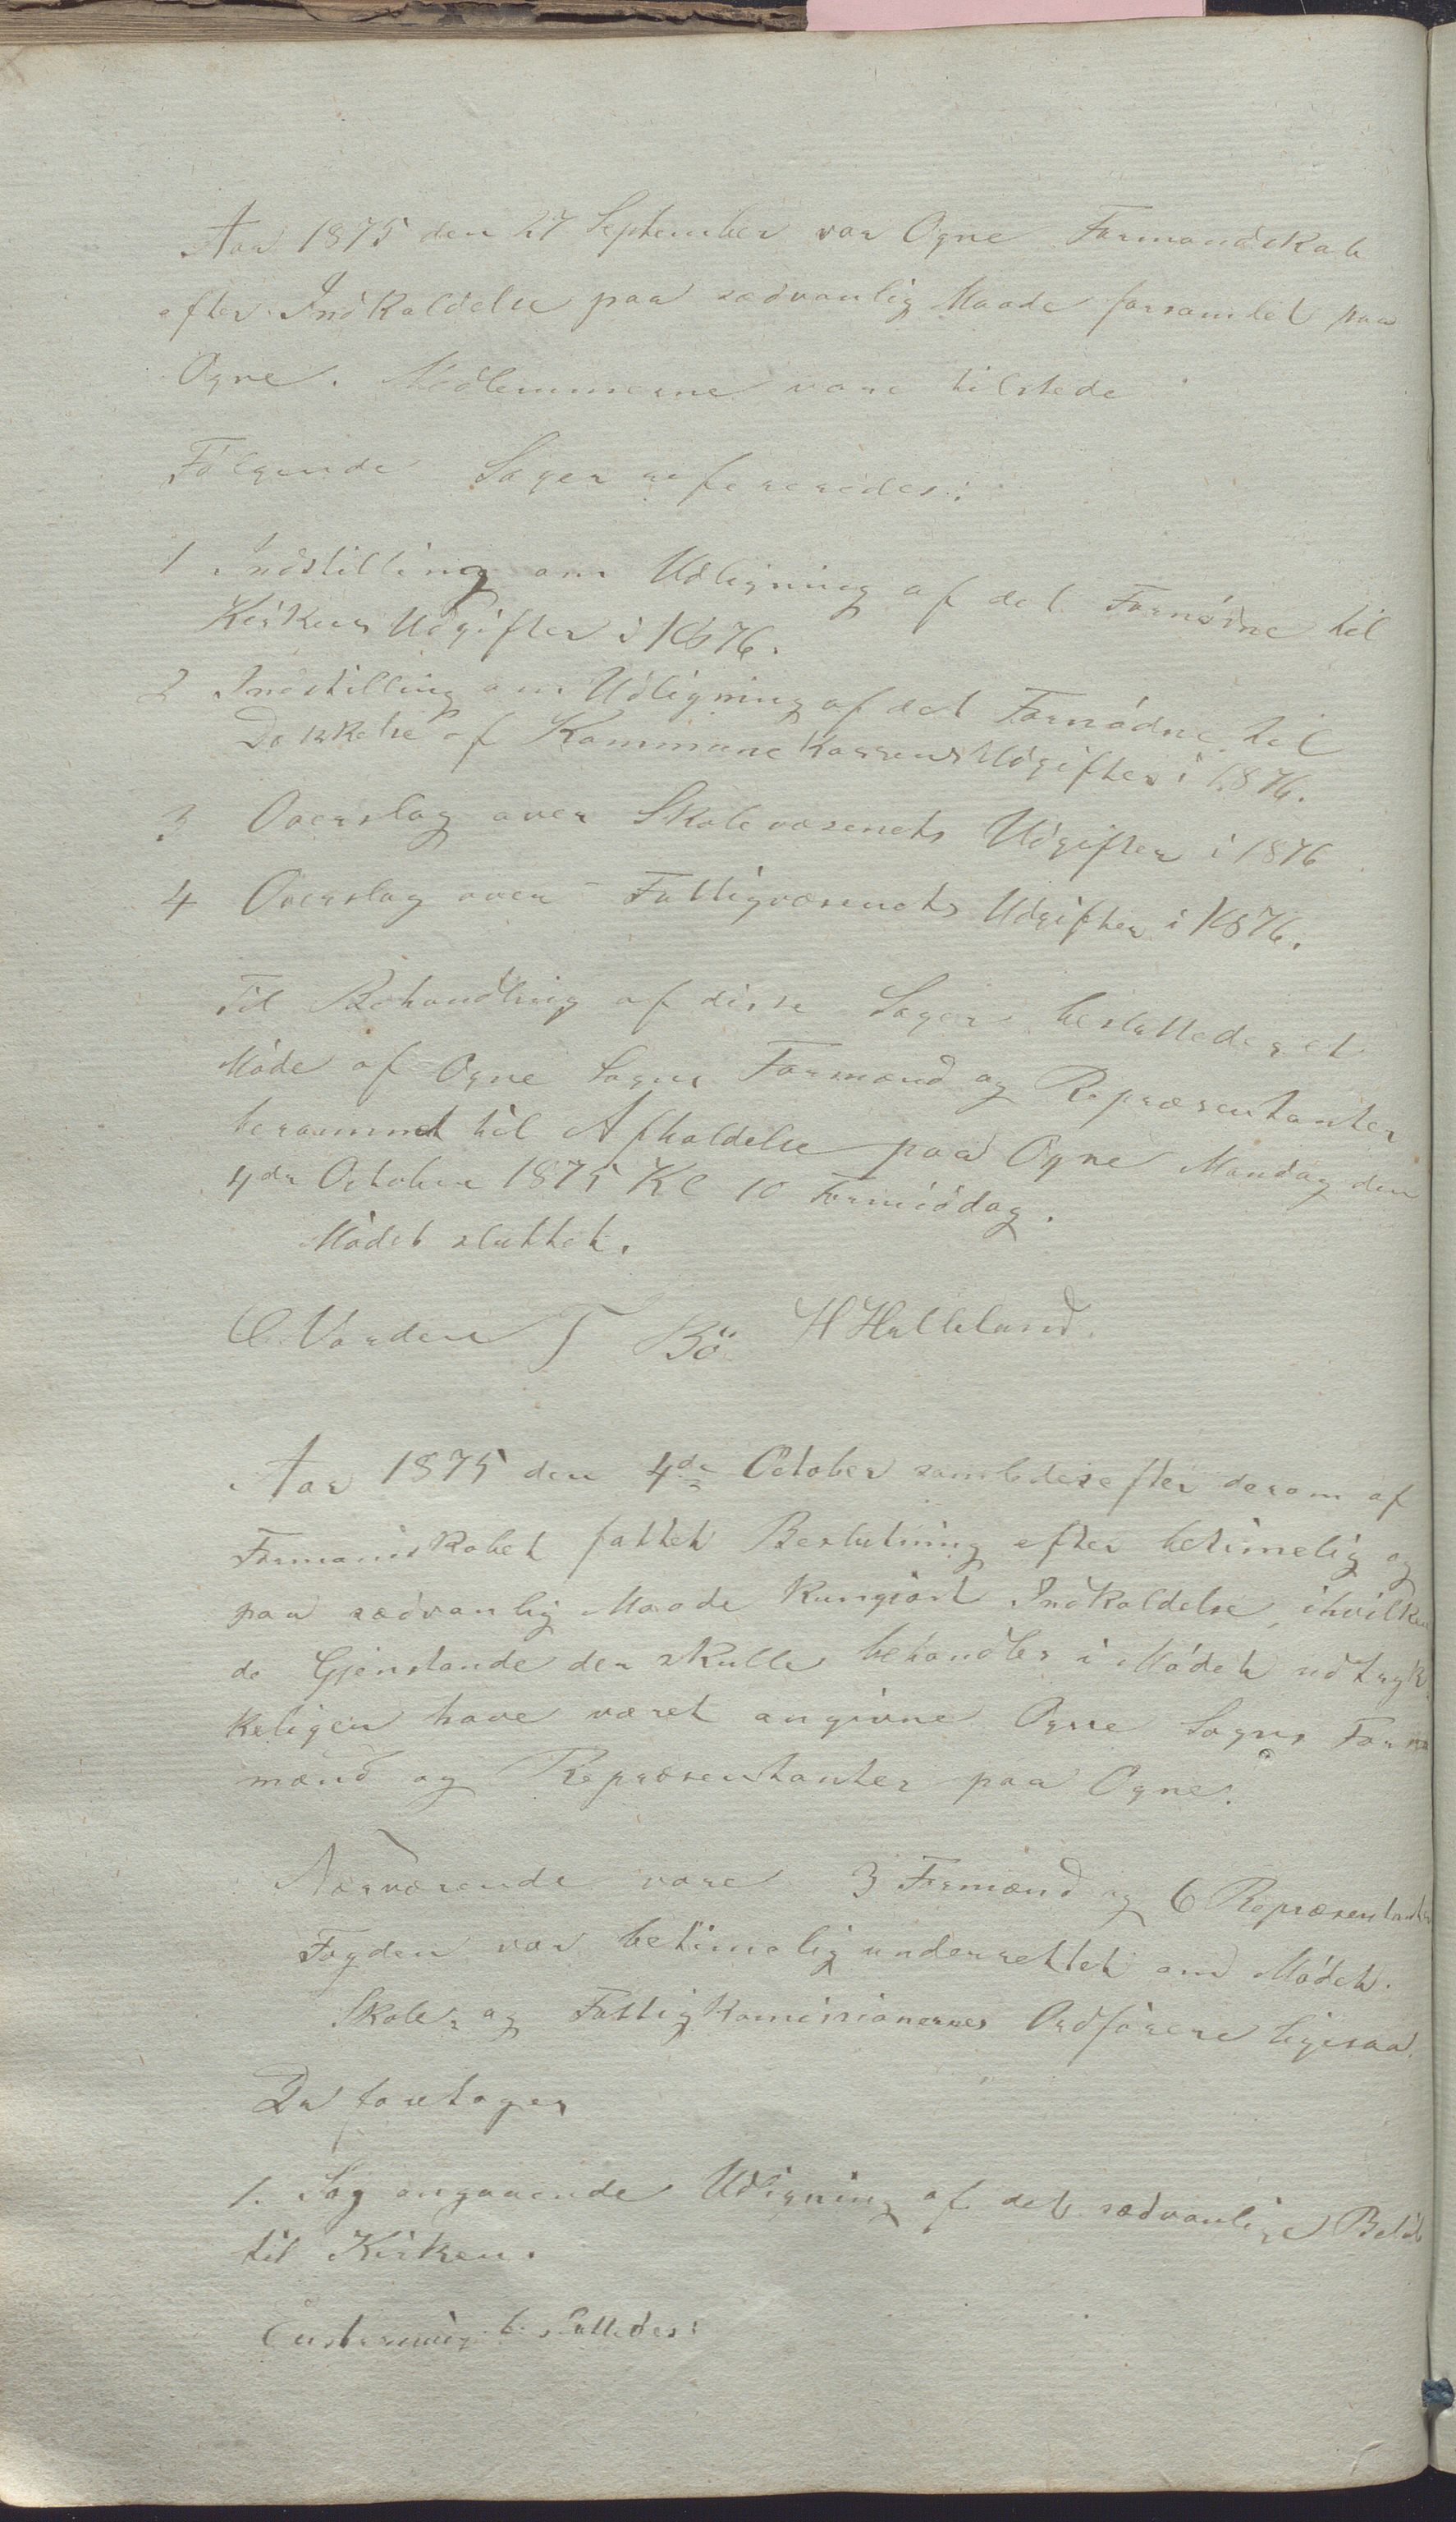 Aar 1875 den 27 September var Ogne Formandskab
efter Indkaldelse paa sædvanlig Maade forsamlet paa
Ogne. Medlemmerne vare tilstede
Følgende Sager refereredes:
1 Indstilling om Udligning af det Fornødne til
Kirkens Udgifter i 1876.
2 Indstilling om Udligning af det Fornødne til
Dækkelse af Kommunekassens Udgifter i 1876.
3 Overslag over Skolevæsenets Udgifter i 1876
4 Overslag over Fattigvæsenets Udgifter i 1876.
Til Behandling af disse Sager besluttedes et
Møde af Ogne Sogns Formænd og Repræsentanter
berammet til Afholdelse paa Ogne Mandag den
4de October 1875 Kl 10 Formiddag.
Mødet sluttet.
C. Varden T Bö H Helleland.
Aar 1875 den 4de October samledes efter derom af
Formandskabet fattet Beslutning efter betimelig og
paa sædvanlig Maade kungjort Indkaldelse, ihvilken
de Gjenstande der skulle behandles i Mødet udtryk
keligen have været angivne Ogne Sogns For
mænd og Repræsentanter paa Ogne.
Nærværende vare 3 Formænd og 6 Repræsentanter
Fogden var betimelig underrettet om Mødet.
Skole- og Fattigkomissionernes Ordförere ligesaa.
Da foretoges
1. Sag angaaende Udligning af det sædvanlige Beløb
til Kirken.
Enstemmig besluttedes: